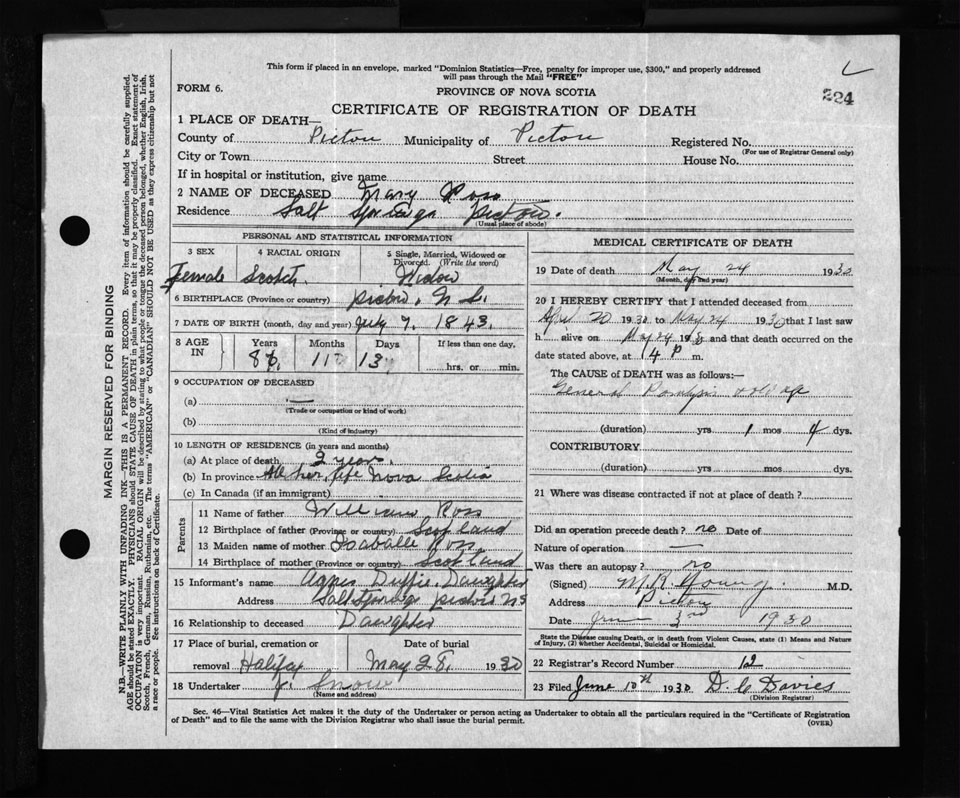 This form if placed in an envelope, marked "Dominion Statistics—Free, penalty for improper use, $300," and properly addressed
will pass through the Mail "FREE"
FORM 6.
PROVINCE OF NOVA SCOTIA
224
CERTIFICATE OF REGISTRATION OF DEATH
1 PLACE OF DEATH—
County of Pictou Municipality of Pictou Registered No.
(For use of Registrar General only)
City or Town Street House No.
If in hospital or institution, give name
2 NAME OF DECEASED Mary Ross
Residence Salt Springs Pictou.
(Usual place of abode)
PERSONAL AND STATISTICAL INFORMATION
3 SEX 4 RACIAL ORIGIN 5 Single, Married, Widowed or Divorced. (Write the word)
Female Scotch Widow
6 BIRTHPLACE (Province or country) Pictou, N.S.
7 DATE OF BIRTH (month, day and year) July 7. 1843.
8 AGE IN Years Months Days If less than one day,
86 11 13 hrs. or min.
9 OCCUPATION OF DECEASED
(a) —
(Trade or occupation or kind of work)
(b)
(Kind of industry)
10 LENGTH OF RESIDENCE (in years and months)
(a) At place of death 2 years
(b) In province All her life Nova Scotia
(c) In Canada (if an immigrant)
Parents
11 Name of father William Ross
12 Birthplace of father (Province or country) Scotland
13 Maiden name of mother Isabelle Ross
14 Birthplace of mother (Province or country) Scotland
15 Informant's name Agnes Duffie. Daughter
Address Salt Springs Pictou NS
16 Relationship to deceased Daughter
17 Place of burial, cremation or Date of burial
removal Halifax May 28, 1930
18 Undertaker J. Snow
(Name and address)
MEDICAL CERTIFICATE OF DEATH
19 Date of death May 24 1930
(Month, day and year)
20 I HEREBY CERTIFY that I attended deceased from
April 20 1930 to May 24 1930 that I last saw
h alive on May 24 1930 and that death occurred on
date stated above, at 4 P m.
The CAUSE of DEATH was as follows:—
General Paralysis old age
(duration) yrs 1 mos 4 dys.
CONTRIBUTORY
(duration) yrs. mos. dys.
21 Where was disease contracted if not at place of death?
Did an operation precede death? no Date of
Nature of operation —
Was there an autopsy? no
(Signed) M.R. Young. M.D.
Address Pictou
Date June 3rd 1930
State the Disease causing Death, or in death from Violent Causes, state (1) Means and Nature
of Injury, (2) whether Accidental, Suicidal or Homicidal.
22 Registrar's Record Number 12
23 Filed June 10th 1930 D. C. Davies
(Division Registrar)
Sec. 46—Vital Statistics Act makes it the duty of the Undertaker or person acting as Undertaker to obtain all the particulars required in the "Certificate of Registration
of Death" and to file the same with the Division Registrar who shall issue the burial permit.
(OVER)
MARGIN RESERVED FOR BINDING
N.B.—WRITE PLAINLY WITH UNFADING INK—THIS IS A PERMANENT RECORD. Every item of information should be carefully supplied.
AGE should be stated EXACTLY. PHYSICIANS should STATE CAUSE OF DEATH in plain terms, so that it may be properly classified. Exact statement of
OCCUPATION is very important. RACIAL ORIGIN will be described by stating to what people or tongue the deceased person belonged, whether English, Irish,
Scotch, French, German, Russian, Ruthenian, etc. The terms "AMERICAN" or "CANADIAN" SHOULD NOT BE USED as they express citizenship but not
a race or people. See instructions on back of Certificate.